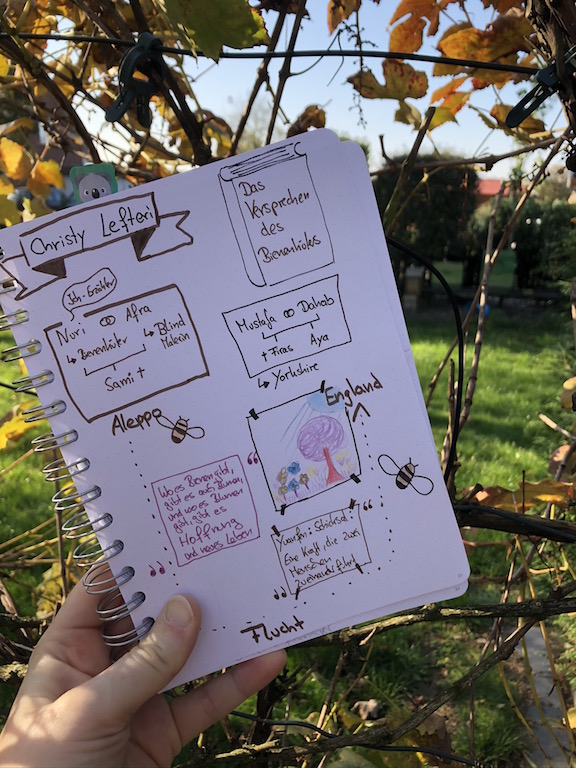 Christy Lefteri
Das
Versprechen
des
Bienenhüters
Ich-Erzähler
Nuri ∞ Afra
↳ Bienenhüter
↳ Blind
Malerin
Sami †
Mustafa ∞ Dahab
† Firas Aya
↳ Yorkshire
Aleppo
England
"
Wo es Bienen gibt,
gibt es auch Blumen,
und wo es Blumen
gibt, gibt es
Hoffnung
und neues Leben
"
"
Schicksal:
Eine Kraft, die zwei
Menschen
zueinander führt
"
Flucht